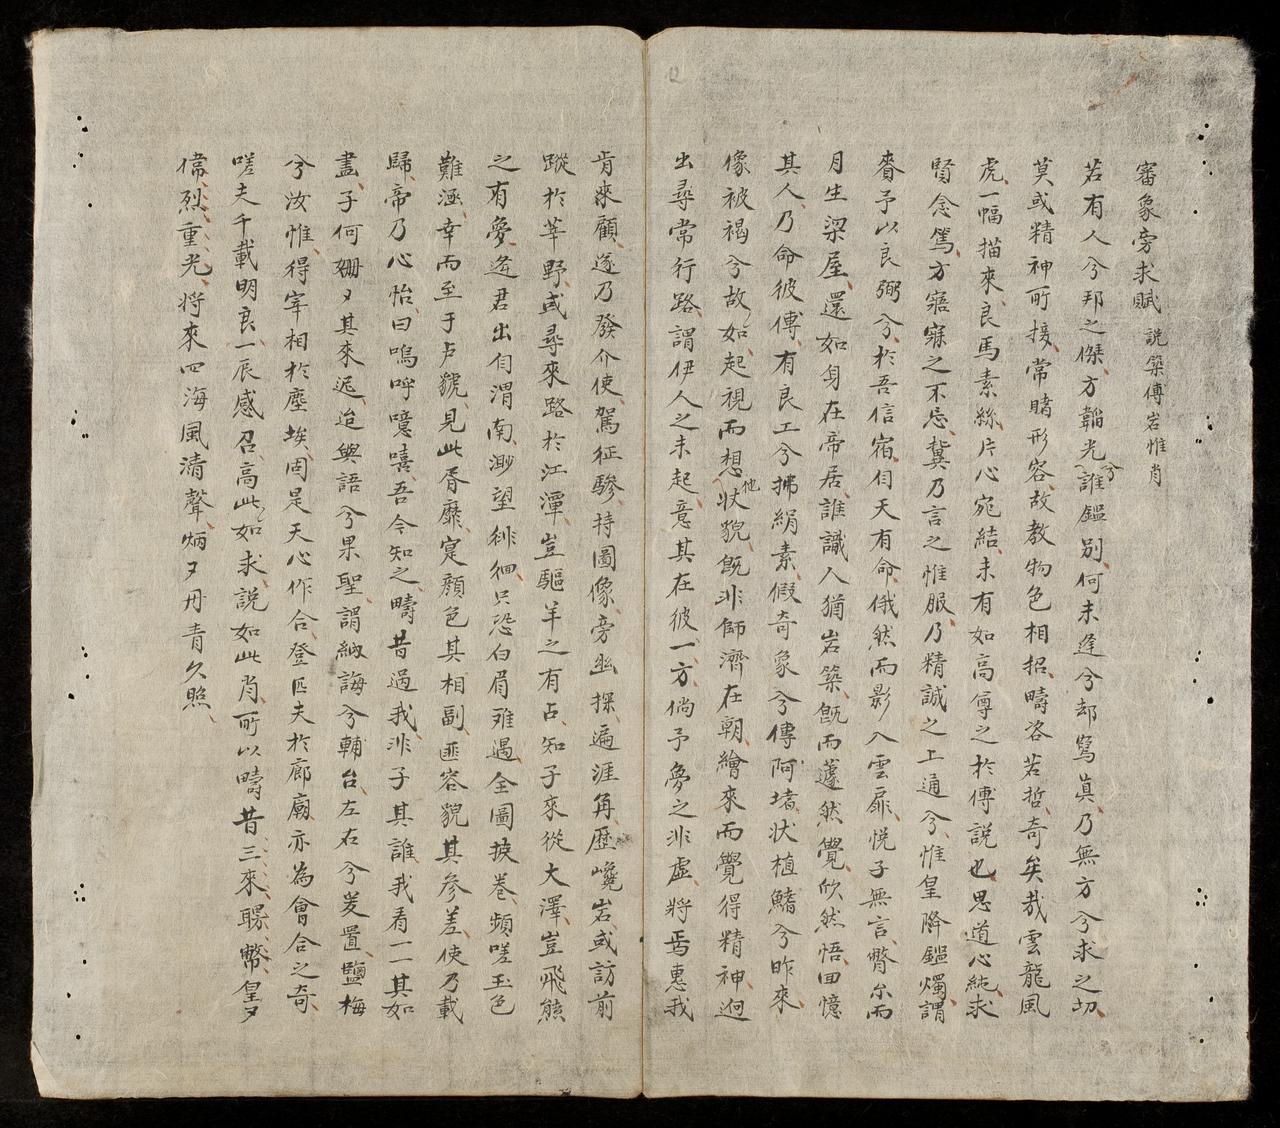 審象旁求賦 說築傅岩惟肖
若有人兮邦之傑方韜光兮誰鑑別何未逢兮却寫真乃無方兮求之切
莫或精神所接常睹形容故教物色相招疇咨若哲奇矣哉雲龍風
虎一幅描來良馬素絲片心宛結未有如高尊之於傅說也思道心純求
賢念篤方寤寐之不忘冀乃言之惟服乃精誠之上通兮惟皇降鑑燭謂
賚予以良弼兮於吾信宿自天有命俄然而影入雲扉悅子無言瞥尔而
月生梁屋還如身在帝居誰識人猶岩築既而蘧然覺欣然悟回憶
其人乃命彼傅有良工兮拂絹素假奇象兮傳阿堵狀植鰭兮昨來
像被褐兮故如起視而想他狀貌既非師濟在朝繪來而覺得精神迥
出尋常行路謂伊人之未起意其在彼一方倘予夢之非虛將焉惠我
肯來顧遂乃發介使駕征驂持圖像旁幽探遍涯角歷巉岩或訪前
蹤於莘野或尋來路於江潭豈驅羊之有占知子來從大澤豈飛熊
之有夢逢君出自渭南渺望徘徊只恐白眉难遇全圖披卷頻嗟玉色
難逢幸而至于卢虢見此胥靡寔顏色其相副匪容貌其參差使乃載
歸帝乃心怡曰嗚呼噫嘻吾今知之疇昔過我非子其誰我看一一其如
畫子何姍〻其來迟迨與語兮果聖謂納誨兮輔台左右兮爰置鹽梅
兮汝惟得宰相於塵埃罔是天心作合登匹夫於廊廟亦為會合之奇
嗟夫千載明良一辰感召高此如求說如此肖所以疇昔三來聘幣皇〻
偉烈重光將來四海風清聲炳〻丹青久照